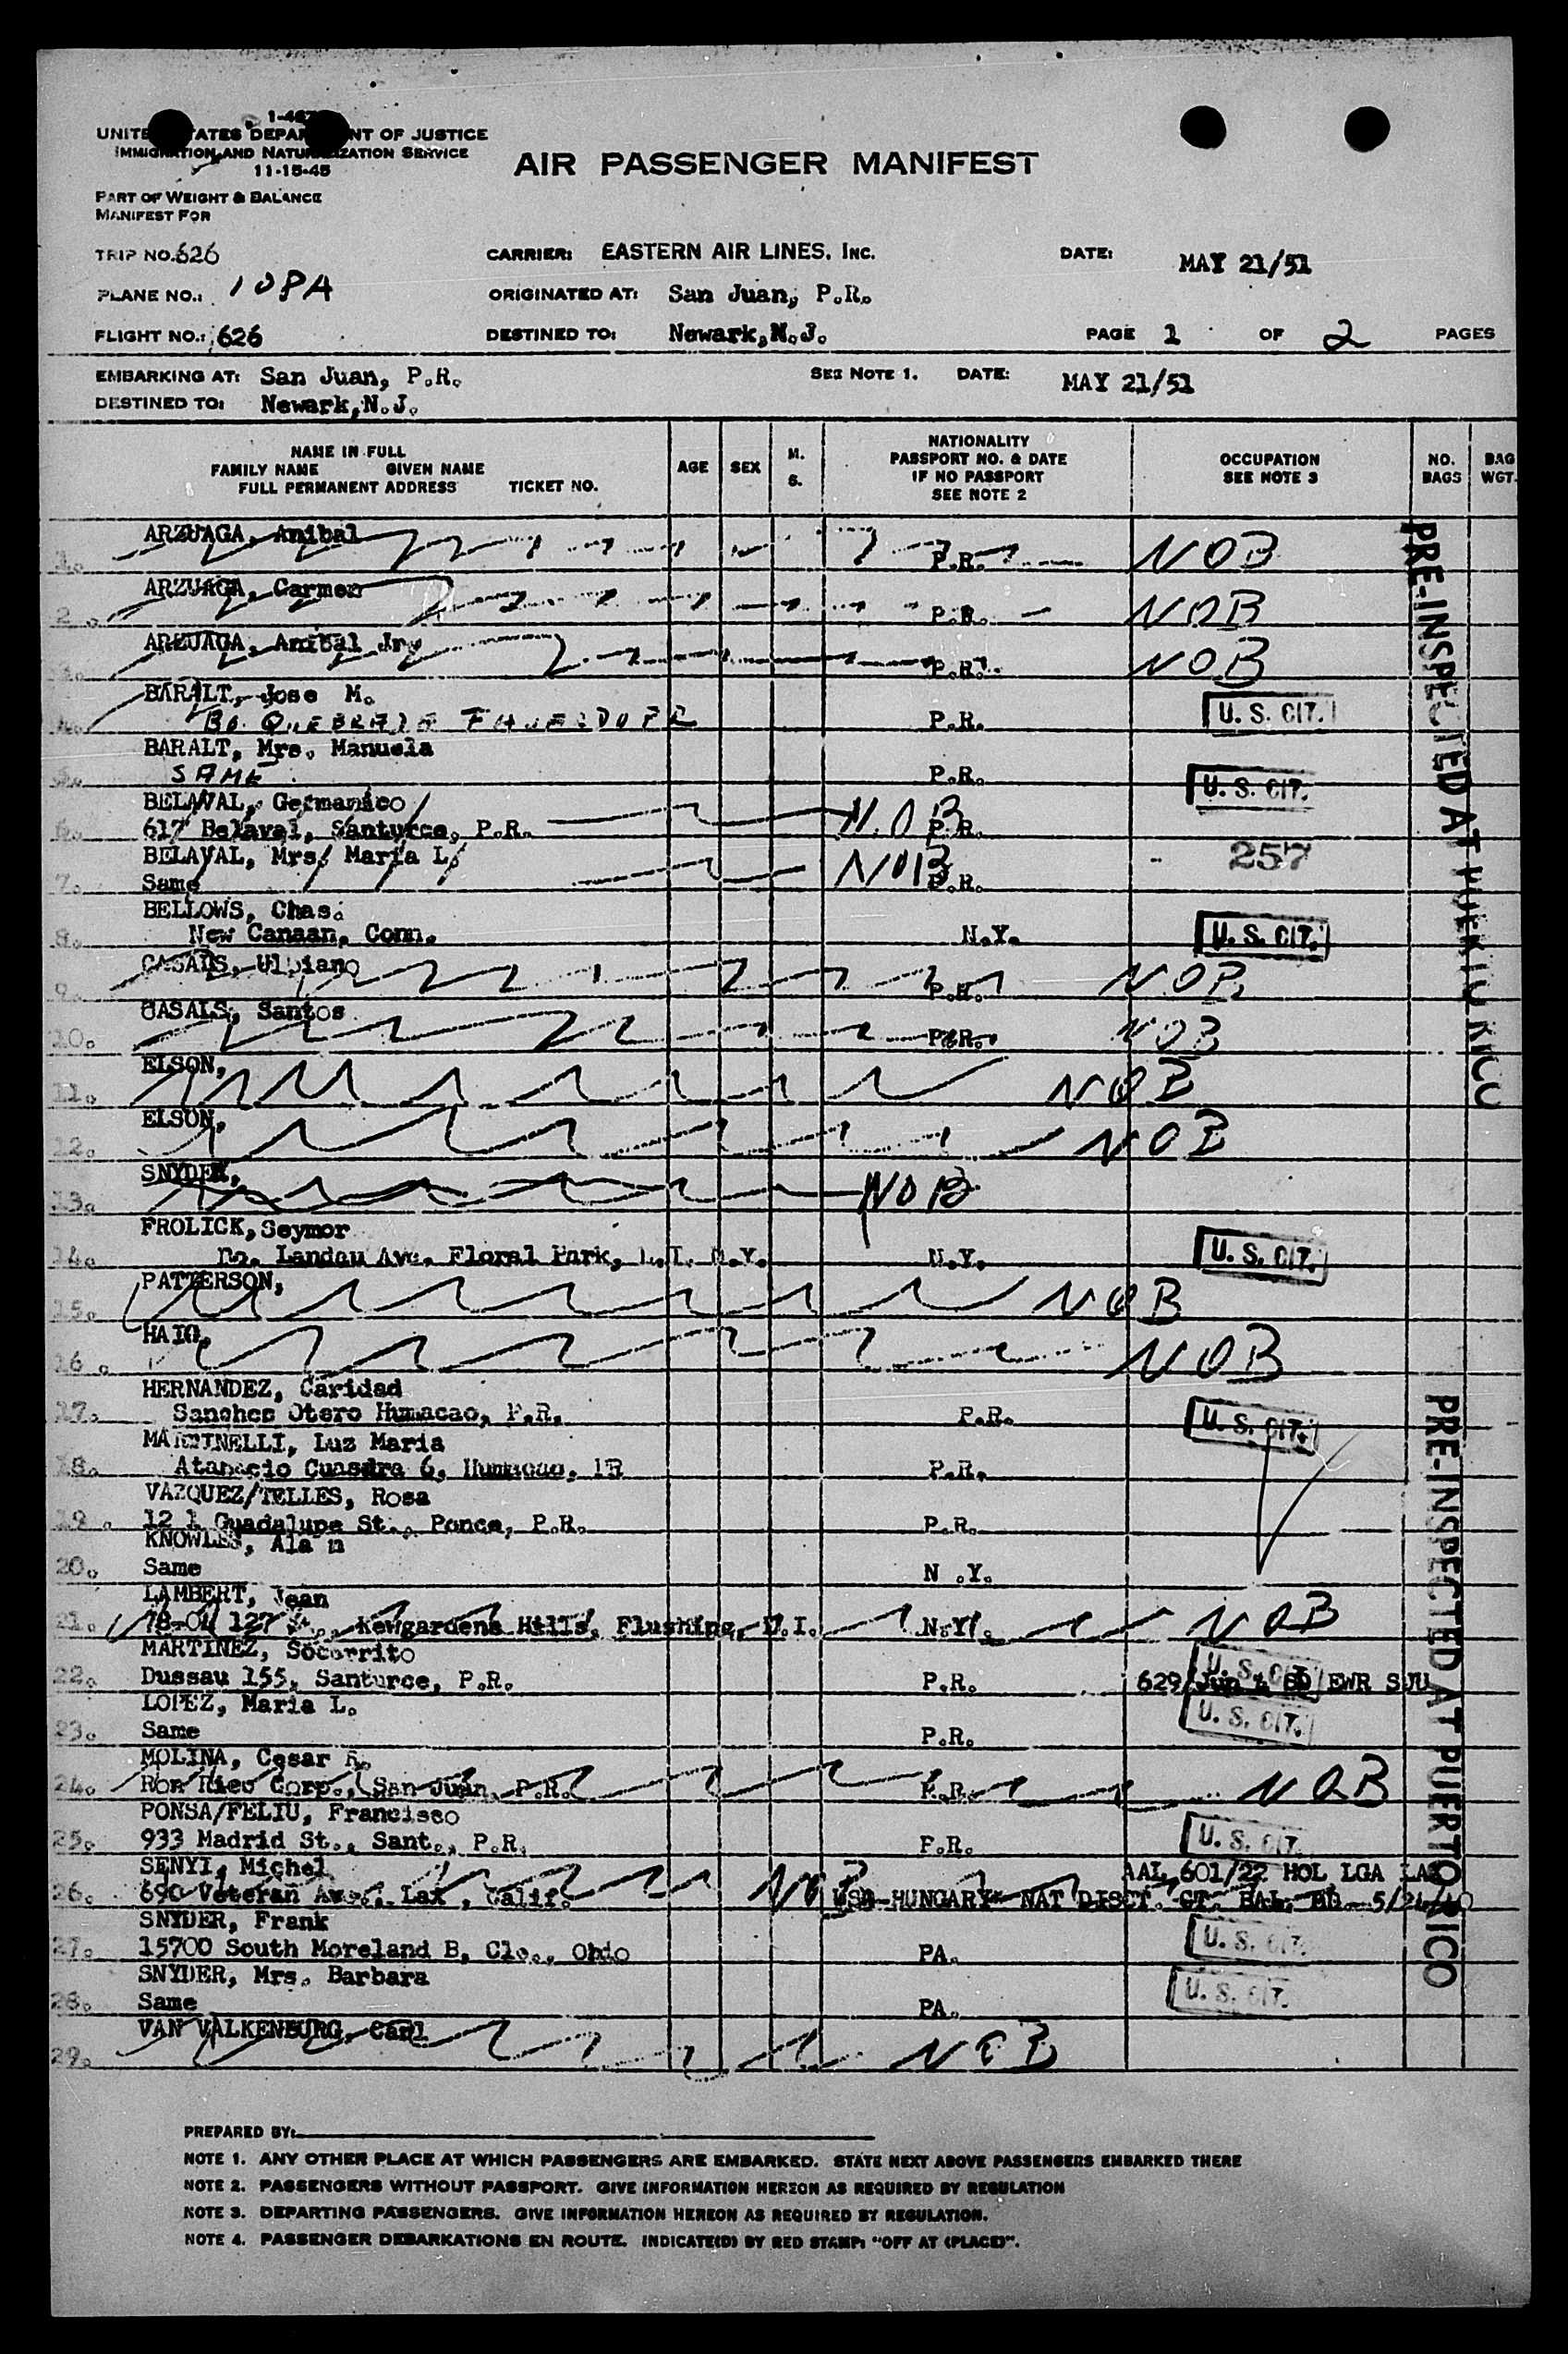 UNITED STATES DEPARTMENT OF JUSTICE
IMMIGRATION AND NATURALIZATION SERVICE
11-15-45
AIR PASSENGER MANIFEST
PART OF WEIGHT & BALANCE
MANIFEST FOR
TRIP NO. 626 CARRIER: EASTERN AIR LINES, INC. DATE: MAY 21/51
PLANE NO.: 108A ORIGINATED AT: San Juan, P.R.
FLIGHT NO.: 626 DESTINED TO: Newark,N.J. PAGE 1 OF 2 PAGES
EMBARKING AT: San Juan, P.R. SEE NOTE 1. DATE: MAY 21/51
DESTINED TO: Newark,N.J.
NAME IN FULL
FAMILY NAME GIVEN NAME
FULL PERMANENT ADDRESS TICKET NO.
AGE SEX M. S.
NATIONALITY
PASSPORT NO. & DATE
IF NO PASSPORT
SEE NOTE 2
OCCUPATION
SEE NOTE 3
NO. BAGS
BAG WGT.
ARZUAGA, Anibal
1. P.R. NOB
ARZUAGA, Carmen
2. P.R. NOB
ARZUAGA, Anibal Jr.
3. P.R. NOB
BARALT, Jose M.
4. P.R. U. S. CIT.
BARALT, Mrs. Manuela
5. SAME P.R. U. S. CIT.
BELAVAL, Germanico
6. 617 Belaval, Santurce, P.R. NOB P.R.
BELAVAL, Mrs. Maria L.
7. Same NOB P.R. 257
BELLOWS, Chas.
8. New Canaan, Conn. N.Y. U. S. CIT.
CASALS, Ulpiano
9. P.R. NOB
CASALS, Santos
10. P.R. NOB
ELSON,
11. NOB
ELSON,
12. NOB
SNYDER,
13. NOB
FROLICK, Seymor
14. Landau Ave. Floral Park, L.I. N.Y. N.Y. U. S. CIT.
PATTERSON,
15. NOB
16. NOB
HERNANDEZ, Caridad
17. Sanches Otero Humacao, P.R. P.R. U. S. CIT.
MARTINELLI, Luz Maria
18. Atanacio Cuasdra 6, Humacao, PR P.R.
VAZQUEZ/TELLES, Rosa
19. 12 1 Guadalupe St., Ponce, P.R. P.R.
KNOWLES, Ala n
20. Same N .Y.
LAMBERT, Jean
21. 127 Kewgardens Hills, Flushing, N.Y. NOB
MARTINEZ, Socorrito
22. Dussau 155, Santurce, P.R. P.R. U. S. CIT. 629/Jun EWR SJU
LOPEZ, Maria L.
23. Same P.R. U. S. CIT.
MOLINA, Cesar R.
24. Ron Rico Corp., San Juan, P.R. P.R. NOB
PONSA/FELIU, Francisco
25. 933 Madrid St., Sant., P.R. P.R. U. S. CIT.
SENYI, Michel AAL 601/22 HOL LGA LAX
26. 690 Veteran Ave., Lax , Calif. NOB HUNGARY NAT DISCT. CT. BAL,
SNYDER, Frank
27. 15700 South Moreland B, Cle., Ohio PA. U. S. CIT.
SNYDER, Mrs. Barbara
28. Same PA. U. S. CIT.
VAN VALKENBURG, Carl
29. NOB
PRE-INSPECTED AT PUERTO RICO
PRE-INSPECTED AT PUERTO RICO
PREPARED BY:
NOTE 1. ANY OTHER PLACE AT WHICH PASSENGERS ARE EMBARKED. STATE NEXT ABOVE PASSENGERS EMBARKED THERE
NOTE 2. PASSENGERS WITHOUT PASSPORT. GIVE INFORMATION HEREON AS REQUIRED BY REGULATION
NOTE 3. DEPARTING PASSENGERS. GIVE INFORMATION HEREON AS REQUIRED BY REGULATION.
NOTE 4. PASSENGER DEBARKATIONS EN ROUTE. INDICATE(D) BY RED STAMP: "OFF AT (PLACE)".